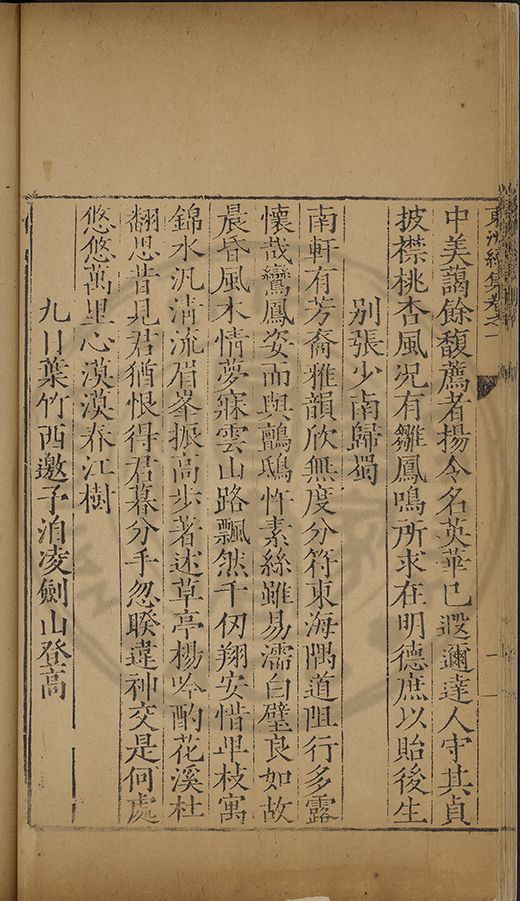 東洲續集卷之一
中美藹餘馥薦者揚令名英華已遐邇達人守其貞
披襟桃杏風况有雛鳳鳴所求在明德庶以貽後生
別張少南歸蜀
南軒有芳裔雅韻欣無度分符東海隅道阻行多露
懷哉鸞鳳姿而與鸇鴟忤素絲雖易濡白璧良如故
晨昏風木情夢寐雲山路飄然千仞翔安惜卑枝寓
錦水汎清流眉峯振高步著述草亭楊吟酌花溪杜
翻思昔見君猶恨得君暮分手忽睽違神交是何處
悠悠萬里心漠漠春江樹
九日葉竹西邀予泊凌劍山登高